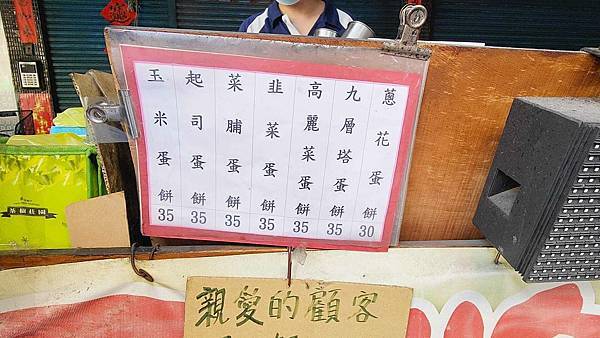 蔥花蛋餅 30
九層塔蛋餅 35
高麗菜蛋餅 35
韭菜蛋餅 35
菜脯蛋餅 35
起司蛋餅 35
玉米蛋餅 35
親愛的顧客
茶樹莊園